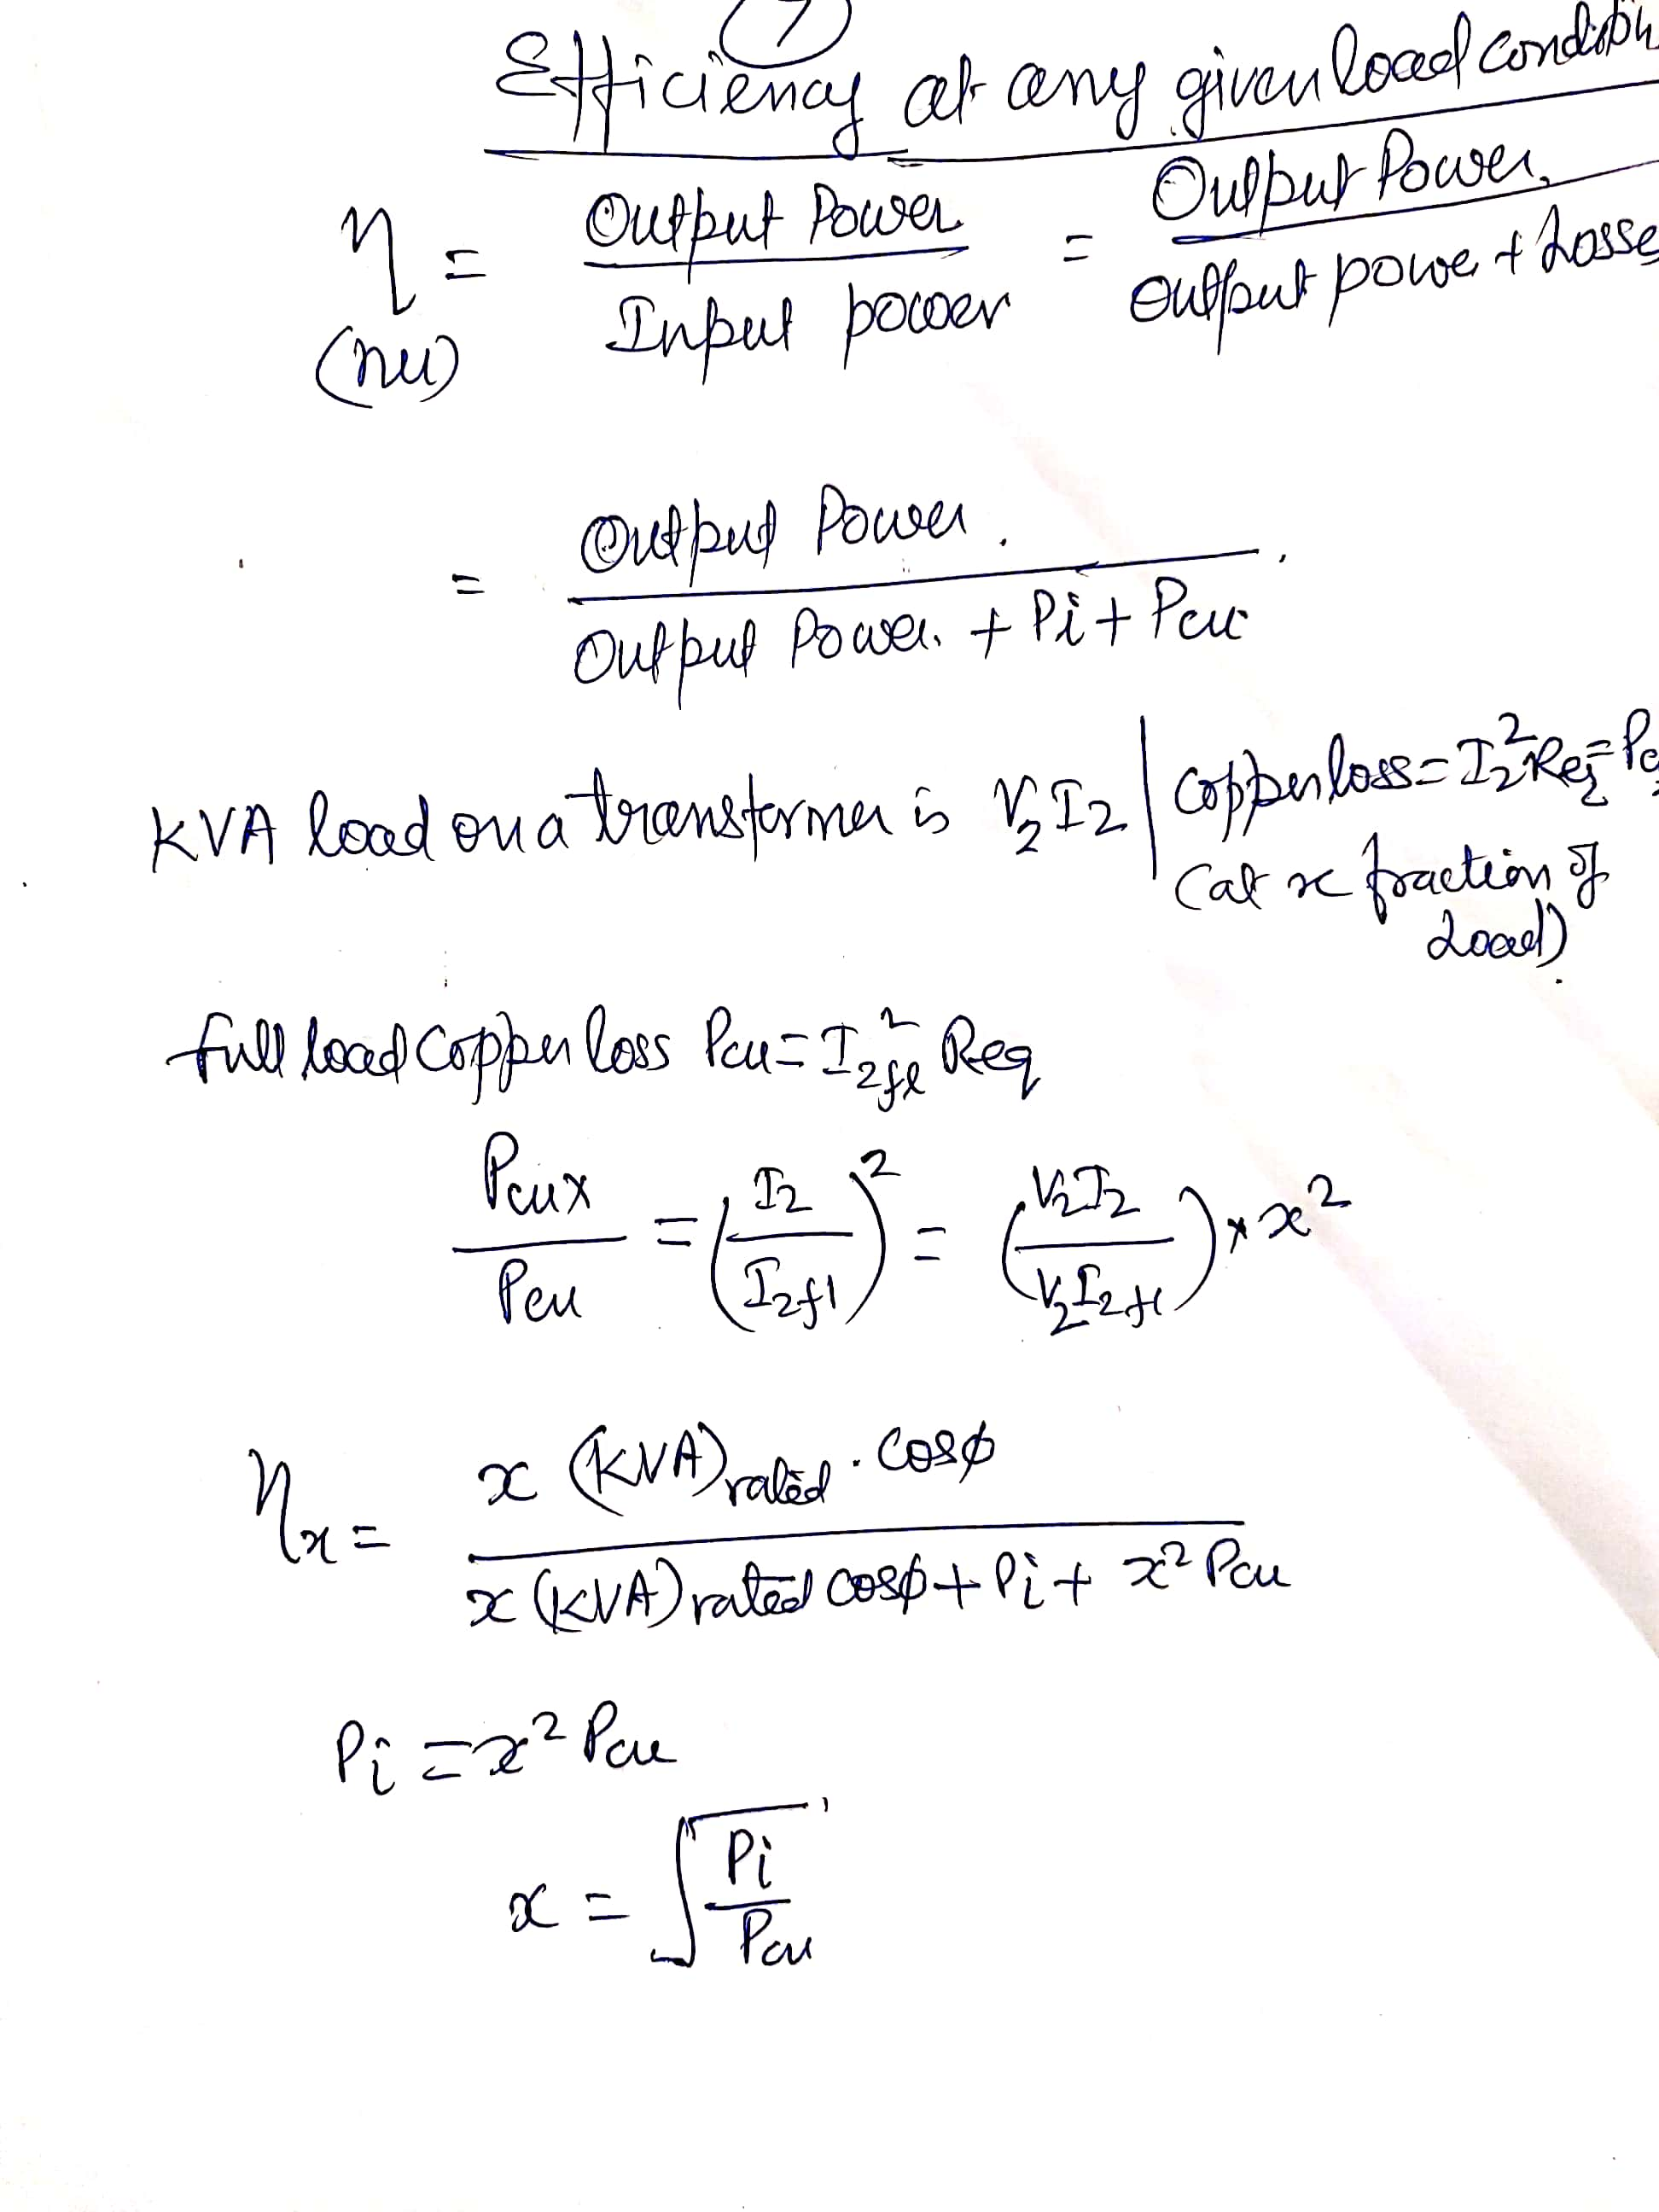 7
Efficiency at any given load condition
η = Output Power / Input power = Output Power / Output power + Losse
(nu)
= Output Power / Output Power + Pi + Pcu
KVA load on a transformer is V₂I₂ | Copper loss = I₂²Req₂ = Pc
(at x fraction of
Load)
full load Copper loss Pcu = I₂fl² Req
Pcux / Pcu = (I₂ / I₂fl)² = (V₂I₂ / V₂I₂fl) * x²
ηx = x (KVA)rated . Cosφ / x (KVA)rated cosφ + Pi + x² Pcu
Pi = x² Pcu
x = √(Pi / Pcu)